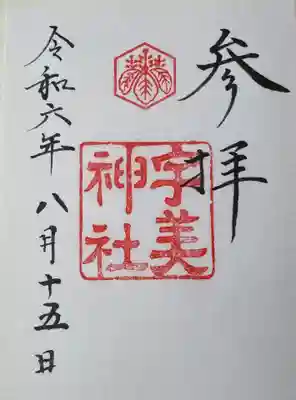 参拝
宇美
神社
令和六年 八月十五日